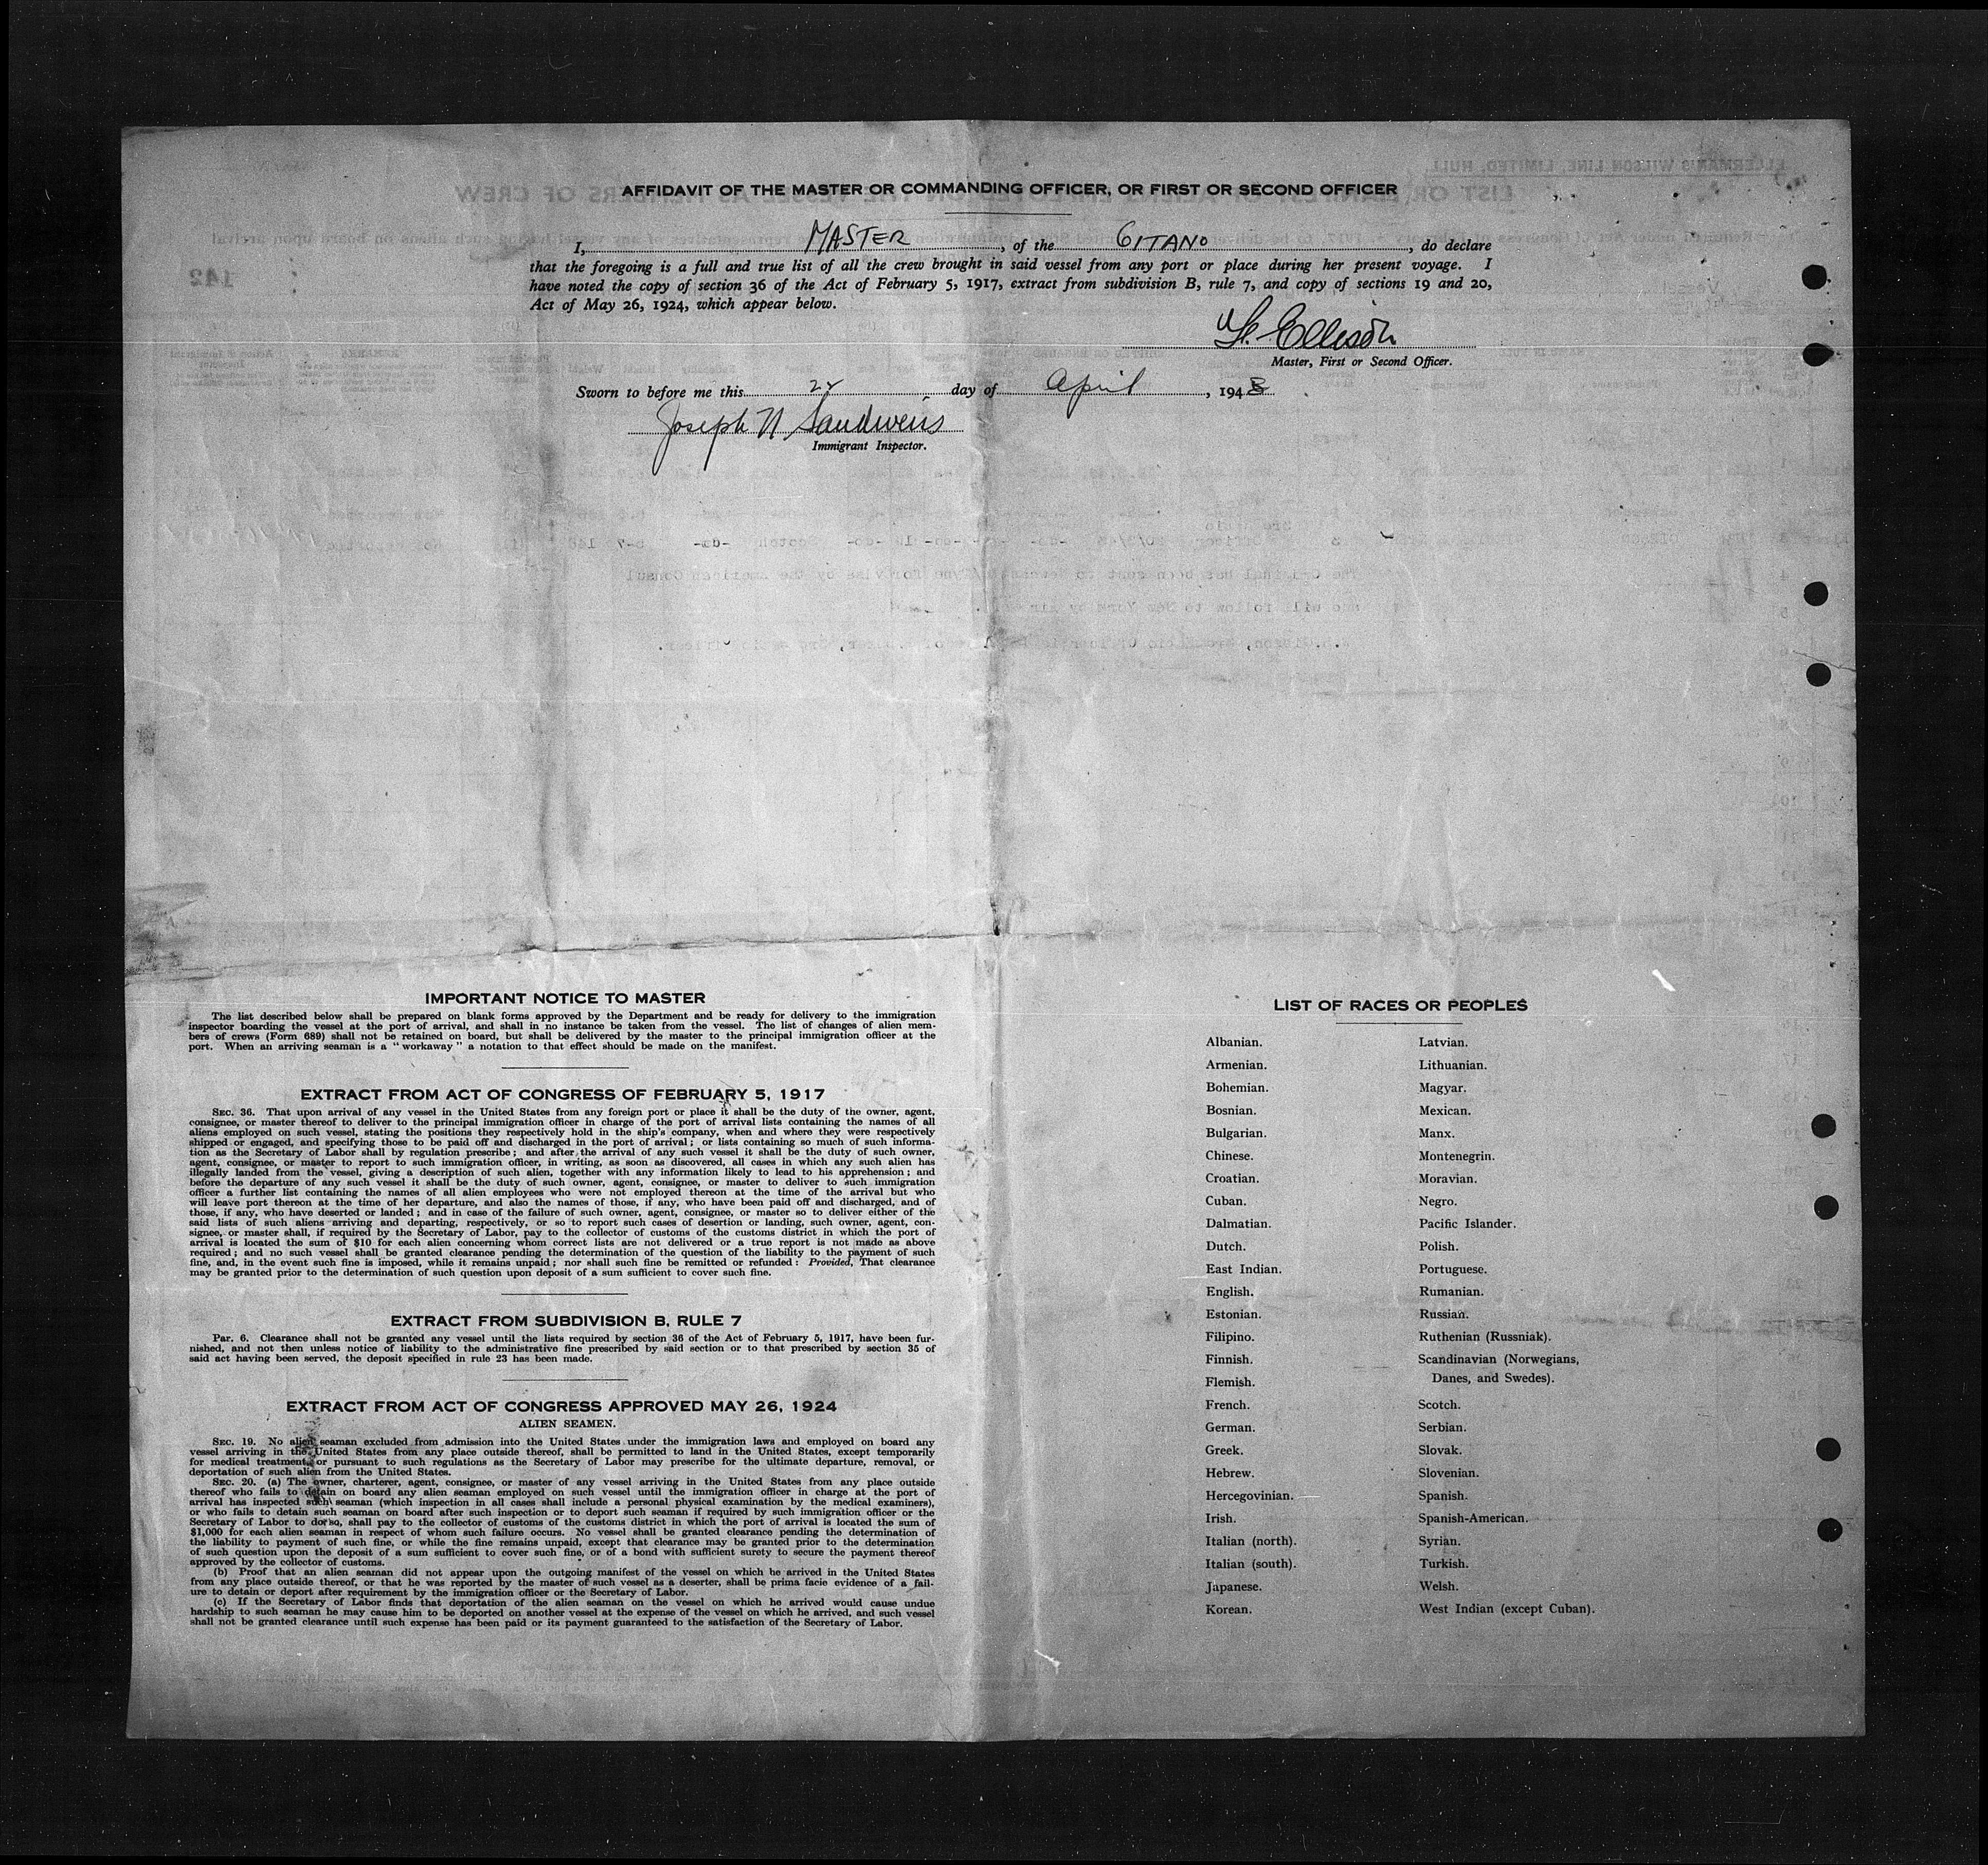 AFFIDAVIT OF THE MASTER OR COMMANDING OFFICER, OR FIRST OR SECOND OFFICER
I, MASTER, of the GITANO, do declare
that the foregoing is a full and true list of all the crew brought in said vessel from any port or place during her present voyage. I
have noted the copy of section 36 of the Act of February 5, 1917, extract from subdivision B, rule 7, and copy of sections 19 and 20,
Act of May 26, 1924, which appear below.
Ellison
Master, First or Second Officer.
Sworn to before me this 22 day of April, 1943
Joseph N Sandweis
Immigrant Inspector.
IMPORTANT NOTICE TO MASTER
The list described below shall be prepared on blank forms approved by the Department and be ready for delivery to the immigration
inspector boarding the vessel at the port of arrival, and shall in no instance be taken from the vessel. The list of changes of alien mem-
bers of crews (Form 689) shall not be retained on board, but shall be delivered by the master to the principal immigration officer at the
port. When an arriving seaman is a "workaway" a notation to that effect should be made on the manifest.
EXTRACT FROM ACT OF CONGRESS OF FEBRUARY 5, 1917
SEC. 36. That upon arrival of any vessel in the United States from any foreign port or place it shall be the duty of the owner, agent,
consignee, or master thereof to deliver to the principal immigration officer in charge of the port of arrival lists containing the names of all
aliens employed on such vessel, stating the positions they respectively hold in the ship's company, when and where they were respectively
shipped or engaged, and specifying those to be paid off and discharged in the port of arrival; or lists containing so much of such informa-
tion as the Secretary of Labor shall by regulation prescribe; and after the arrival of any such vessel it shall be the duty of such owner,
agent, consignee, or master to report to such immigration officer, in writing, as soon as discovered, all cases in which any such alien has
illegally landed from the vessel, giving a description of such alien, together with any information likely to lead to his apprehension; and
before the departure of any such vessel it shall be the duty of such owner, agent, consignee, or master to deliver to such immigration
officer a further list containing the names of all alien employees who were not employed thereon at the time of the arrival but who
will leave port thereon at the time of her departure, and also the names of those, if any, who have been paid off and discharged, and of
those, if any, who have deserted or landed; and in case of the failure of such owner, agent, consignee, or master so to deliver either of the
said lists of such aliens arriving and departing, respectively, or so to report such cases of desertion or landing, such owner, agent, con-
signee, or master shall, if required by the Secretary of Labor, pay to the collector of customs of the customs district in which the port of
arrival is located the sum of $10 for each alien concerning whom correct lists are not delivered or a true report is not made as above
required; and no such vessel shall be granted clearance pending the determination of the question of the liability to the payment of such
fine, and, in the event such fine is imposed, while it remains unpaid; nor shall such fine be remitted or refunded: Provided, That clearance
may be granted prior to the determination of such question upon deposit of a sum sufficient to cover such fine.
EXTRACT FROM SUBDIVISION B, RULE 7
Par. 6. Clearance shall not be granted any vessel until the lists required by section 36 of the Act of February 5, 1917, have been fur-
nished, and not then unless notice of liability to the administrative fine prescribed by said section or to that prescribed by section 35 of
said act having been served, the deposit specified in rule 23 has been made.
EXTRACT FROM ACT OF CONGRESS APPROVED MAY 26, 1924
ALIEN SEAMEN.
SEC. 19. No alien seaman excluded from admission into the United States under the immigration laws and employed on board any
vessel arriving in the United States from any place outside thereof, shall be permitted to land in the United States, except temporarily
for medical treatment, or pursuant to such regulations as the Secretary of Labor may prescribe for the ultimate departure, removal, or
deportation of such alien from the United States.
SEC. 20. (a) The owner, charterer, agent, consignee, or master of any vessel arriving in the United States from any place outside
thereof who fails to detain on board any alien seaman employed on such vessel until the immigration officer in charge at the port of
arrival has inspected such seaman (which inspection in all cases shall include a personal physical examination by the medical examiners),
or who fails to detain such seaman on board after such inspection or to deport such seaman if required by such immigration officer or the
Secretary of Labor to do so, shall pay to the collector of customs of the customs district in which the port of arrival is located the sum of
$1,000 for each alien seaman in respect of whom such failure occurs. No vessel shall be granted clearance pending the determination of
the liability to payment of such fine, or while the fine remains unpaid, except that clearance may be granted prior to the determination
of such question upon the deposit of a sum sufficient to cover such fine, or of a bond with sufficient surety to secure the payment thereof
approved by the collector of customs.
(b) Proof that an alien seaman did not appear upon the outgoing manifest of the vessel on which he arrived in the United States
from any place outside thereof, or that he was reported by the master of such vessel as a deserter, shall be prima facie evidence of a fail-
ure to detain or deport after requirement by the immigration officer or the Secretary of Labor.
(c) If the Secretary of Labor finds that deportation of the alien seaman on the vessel on which he arrived would cause undue
hardship to such seaman he may cause him to be deported on another vessel at the expense of the vessel on which he arrived, and such vessel
shall not be granted clearance until such expense has been paid or its payment guaranteed to the satisfaction of the Secretary of Labor.
LIST OF RACES OR PEOPLES
Albanian.
Armenian.
Bohemian.
Bosnian.
Bulgarian.
Chinese.
Croatian.
Cuban.
Dalmatian.
Dutch.
East Indian.
English.
Estonian.
Filipino.
Finnish.
Flemish.
French.
German.
Greek.
Hebrew.
Hercegovinian.
Irish.
Italian (north).
Italian (south).
Japanese.
Korean.
Latvian.
Lithuanian.
Magyar.
Mexican.
Manx.
Montenegrin.
Moravian.
Negro.
Pacific Islander.
Polish.
Portuguese.
Rumanian.
Russian.
Ruthenian (Russniak).
Scandinavian (Norwegians,
Danes, and Swedes).
Scotch.
Serbian.
Slovak.
Slovenian.
Spanish.
Spanish-American.
Syrian.
Turkish.
Welsh.
West Indian (except Cuban).